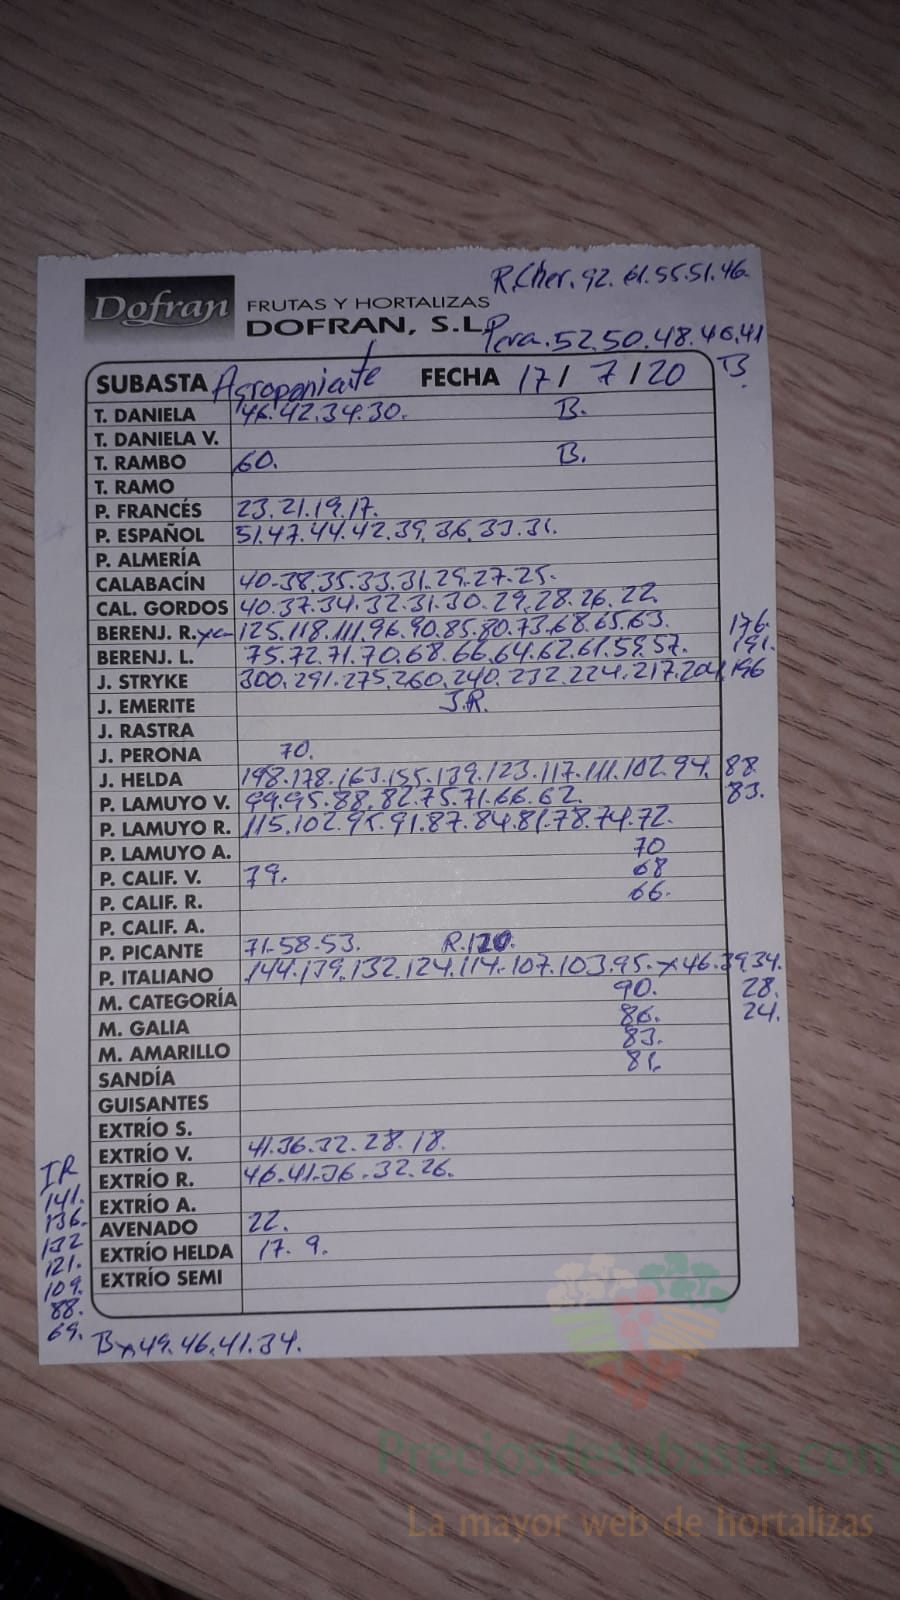 R.Cher. 92. 61.55.51.46.
Dofran FRUTAS Y HORTALIZAS
DOFRAN, S.L.
Pera.52.50.48.46.41
B.
SUBASTA Agroponiente FECHA 17/ 7/20
T. DANIELA 46.42.34.30. B.
T. DANIELA V.
T. RAMBO 60. B.
T. RAMO
P. FRANCÉS 23.21.19.17.
P. ESPAÑOL 51.47.44.42.39.36.33.31.
P. ALMERÍA
CALABACÍN 40-38.35.33.31.29.27.25.
CAL. GORDOS 40.37.34.32.31.30.29.28.26.22.
BERENJ. R. 125.118.111.96.90.85.80.73.68.65.63. 176.
BERENJ. L. 75.72.71.70.68.66.64.62.61.59.57. 191.
J. STRYKE 300.291.275.260.240.232.224.217.204.196
J. EMERITE J.R.
J. RASTRA
J. PERONA 70.
J. HELDA 198.178.163.155.139.123.117.111.102.94. 88.
P. LAMUYO V. 99.95.88.82.75.71.66.62. 83.
P. LAMUYO R. 115.102.95.91.87.84.81.78.74.72.
P. LAMUYO A. 70
P. CALIF. V. 79. 68
P. CALIF. R. 66.
P. CALIF. A.
P. PICANTE 71-58-53. R.120.
P. ITALIANO 144.139.132.124.114.107.103.95. x46.39.34.
M. CATEGORÍA 90. 28.
M. GALIA 86. 24.
83.
M. AMARILLO 81.
SANDÍA
GUISANTES
EXTRÍO S.
EXTRÍO V. 41.36.32.28.18.
EXTRÍO R. 46.41.36.32.26.
EXTRÍO A.
AVENADO 22.
EXTRÍO HELDA 17. 9.
EXTRÍO SEMI
IR
141.
136.
132
121.
109.
88.
69.
Bx49.46.41.34.
Preciosdesubasta.com
La mayor web de hortalizas